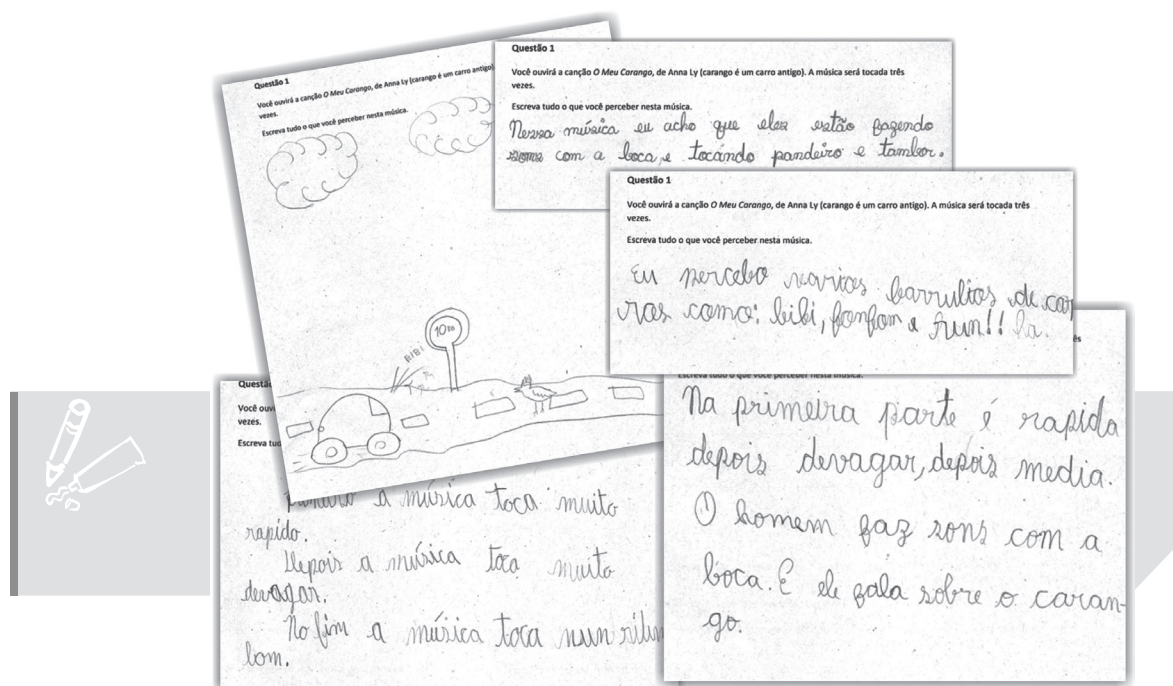 Questão 1
Você ouvirá a canção O Meu Carango, de Anna Ly (carango é um carro antigo)
vezes.
Escreva tudo o que você perceber nesta música.
10
BIBI
Questão 1
Você ouvirá a canção O Meu Carango, de Anna Ly (carango é um carro antigo). A música será tocada três
vezes.
Escreva tudo o que você perceber nesta música.
Nessa música eu acho que eles estão fazendo
soms com a boca, e tocando pandeiro e tambor.
Questão 1
Você ouvirá a canção O Meu Carango, de Anna Ly (carango é um carro antigo). A música será tocada três
vezes.
Escreva tudo o que você perceber nesta música.
Eu percebo varios barrulios de car
ros como: bibi, fonfom e frun!!
Questã
Você ouvi
vezes.
Escreva tud
a música toca muito
rapido.
Depois a música toca muito
devagar.
No fim a música toca nun ritim
bom.
ês
Escreva tudo o que você perceber nesta música.
Na primeira parte é rapida
depois devagar, depois media.
O homem faz sons com a
boca. E ele fala sobre o caran-
go.